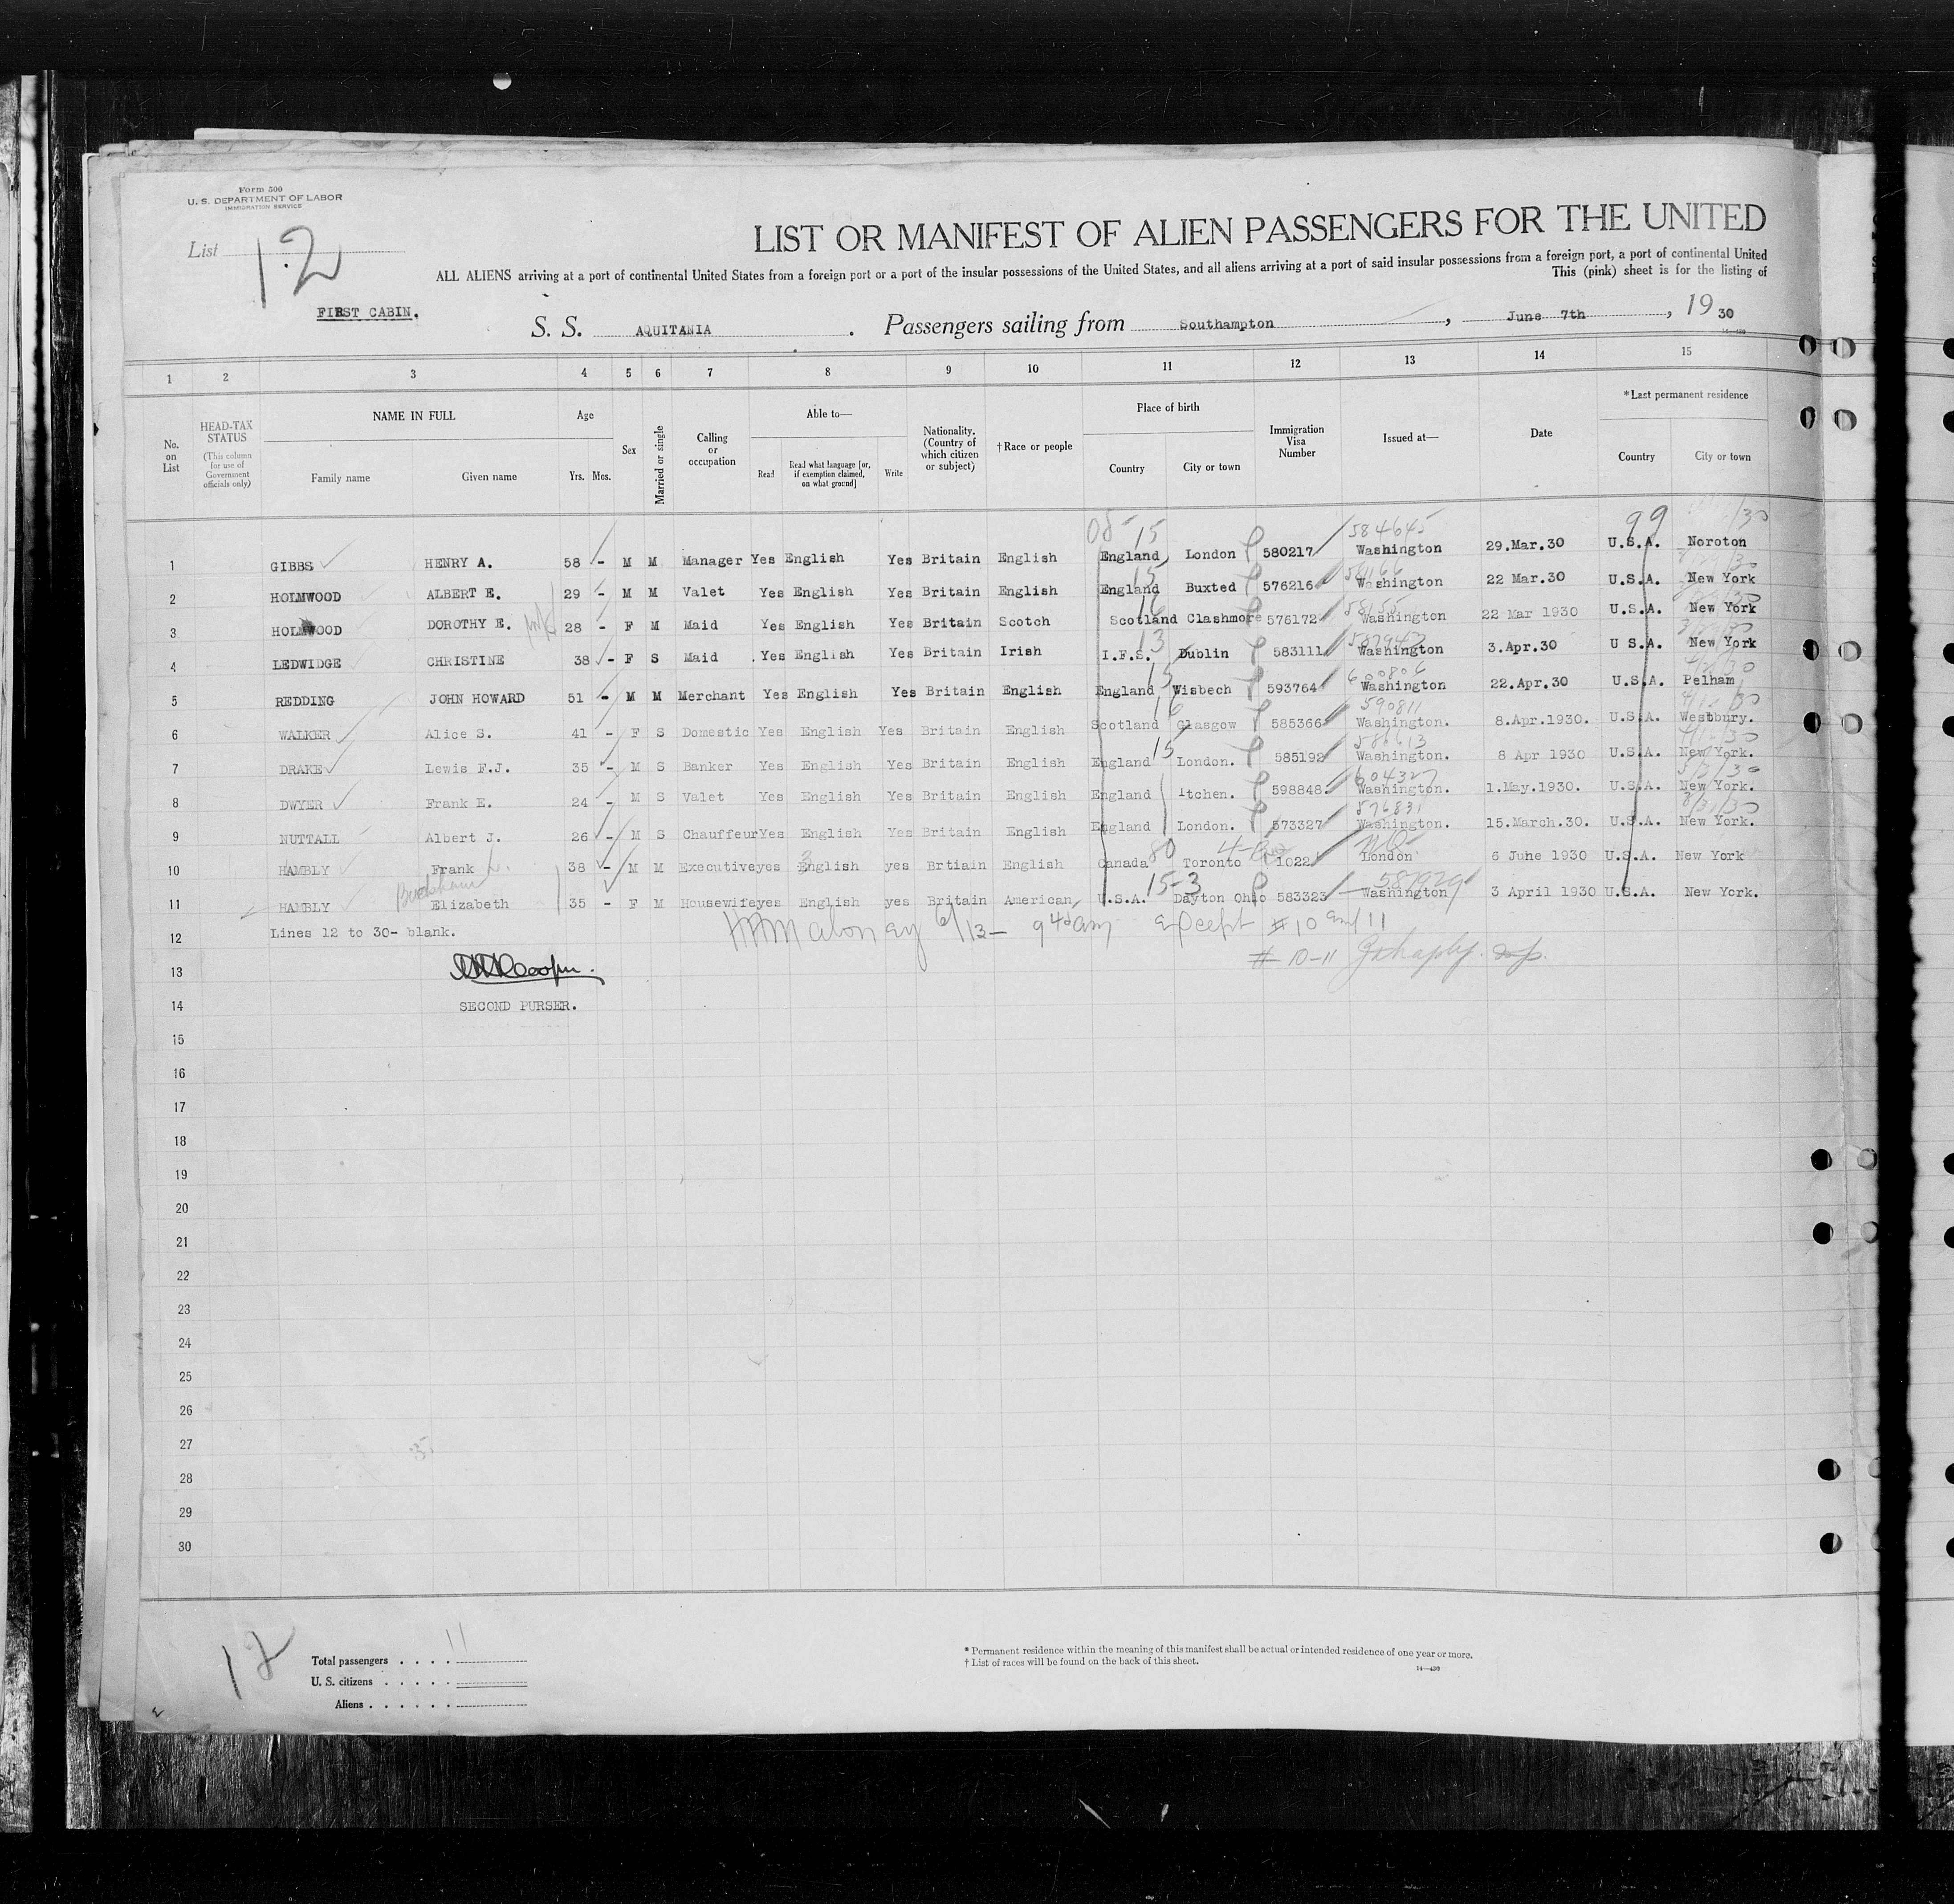 Form 500
U. S. DEPARTMENT OF LABOR
IMMIGRATION SERVICE
List 12
LIST OR MANIFEST OF ALIEN PASSENGERS FOR THE UNITED
ALL ALIENS arriving at a port of continental United States from a foreign port or a port of the insular possessions of the United States, and all aliens arriving at a port of said insular possessions from a foreign port, a port of continental United
This (pink) sheet is for the listing of
FIRST CABIN.
S. S. AQUITANIA. Passengers sailing from Southampton, June 7th, 1930
1 2 3 4 5 6 7 8 9 10 11 12 13 14 15
No. on List
HEAD-TAX STATUS (This column for use of Government officials only)
NAME IN FULL
Family name Given name
Age
Yrs. Mos.
Sex
Married or single
Calling or occupation
Able to—
Read Read what language [or, if exemption claimed, on what ground] Write
Nationality. (Country of which citizen or subject)
†Race or people
Place of birth
Country City or town
Immigration Visa Number
Issued at—
Date
*Last permanent residence
Country City or town
15 584645 99
1 GIBBS HENRY A. 58 - M M Manager Yes English Yes Britain English England London 580217 Washington 29.Mar.30 U.S.A. Noroton
15
2 HOLMWOOD ALBERT E. 29 - M M Valet Yes English Yes Britain English England Buxted 576216 Washington 22 Mar.30 U.S.A. New York
16
3 HOLMWOOD DOROTHY E. 28 - F M Maid Yes English Yes Britain Scotch Scotland Clashmore 576172 Washington 22 Mar 1930 U.S.A. New York
13
4 LEDWIDGE CHRISTINE 38 - F S Maid .Yes English Yes Britain Irish I.F.S. Dublin 583111 Washington 3.Apr.30 U S.A. New York
15 600806
5 REDDING JOHN HOWARD 51 - M M Merchant Yes English Yes Britain English England Wisbech 593764 Washington 22.Apr.30 U.S.A. Pelham
16 590811
6 WALKER Alice S. 41 - F S Domestic Yes English Yes Britain English Scotland Glasgow 585366 Washington. 8.Apr.1930. U.S.A. Westbury.
15 586613
7 DRAKE Lewis F.J. 35 - M S Banker Yes English Yes Britain English England London. 585192 Washington. 8 Apr 1930 U.S.A. New York.
604327
8 DWYER Frank E. 24 - M S Valet Yes English Yes Britain English England Itchen. 598848. Washington. 1.May.1930. U.S.A. New York.
576831
9 NUTTALL Albert J. 26 - M S Chauffeur Yes English Yes Britain English England London. 573327 Washington. 15.March.30. U.S.A. New York.
80
10 HAMBLY Frank L. 38 - M M Executive yes English yes Brtiain English Canada Toronto 1022 London 6 June 1930 U.S.A. New York
15-3 587929
11 HAMBLY Elizabeth 35 - F M Housewife yes English yes Britain American, U.S.A. Dayton Ohio 583323 Washington 3 April 1930 U.S.A. New York.
12 Lines 12 to 30- blank. 6/13- 9 45 am except #10 and 11
13 #10-11
14 SECOND PURSER.
15
16
17
18
19
20
21
22
23
24
25
26
27
28
29
30
12
Total passengers . . . . 11
U. S. citizens . . . . .
Aliens . . . . . .
* Permanent residence within the meaning of this manifest shall be actual or intended residence of one year or more.
† List of races will be found on the back of this sheet.
14—430